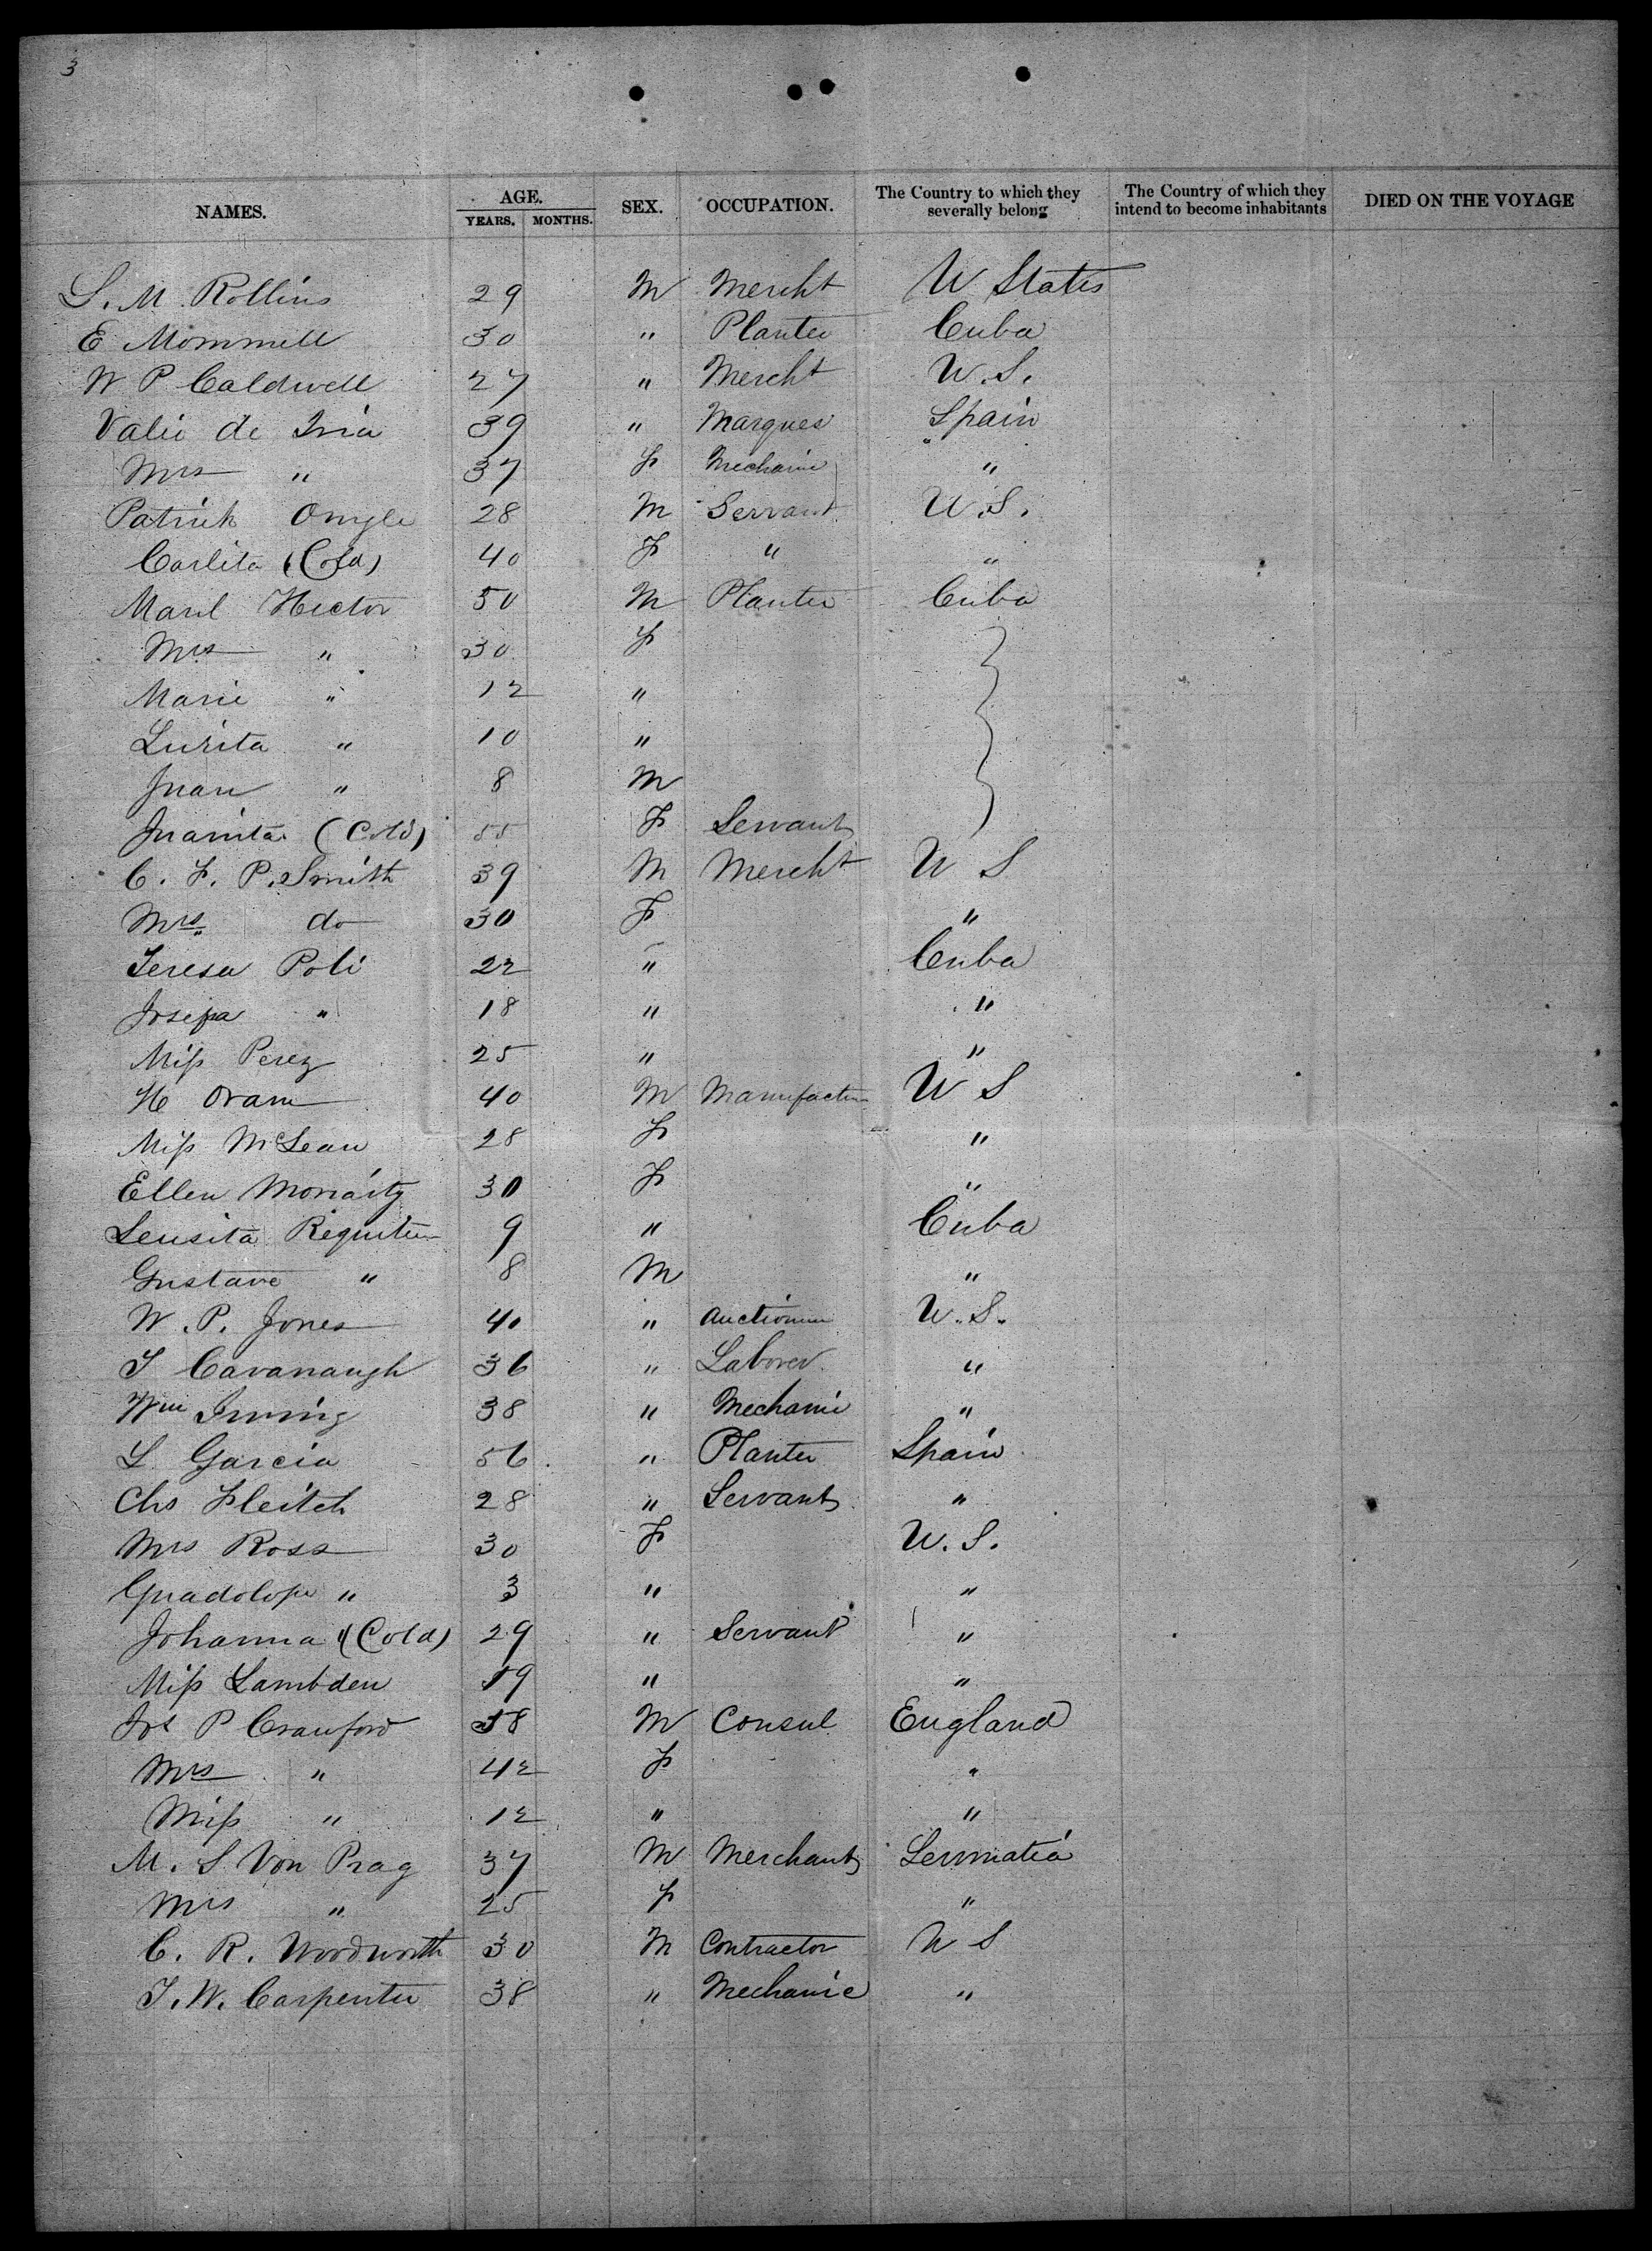 3
NAMES. AGE. YEARS. MONTHS. SEX. OCCUPATION. The Country to which they severally belong The Country of which they intend to become inhabitants DIED ON THE VOYAGE
S. M. Rollins 29 M Mercht U States
E Mommill 30 " Planter Cuba
W P Caldwell 27 " Mercht U.S.
de 39 " Marques Spain
Mrs " 37 F Mechanic "
Patrick 28 M Servant U.S.
Carlita (Cold) 40 F " "
Manl Hector 50 M Planter Cuba
Mrs " 30 F
Marie " 12 "
" 10 "
Juan " 8 M
Juanita (Cold) 55 F Servant
C. F. P. Smith 39 M Mercht U S
Mrs. do 30 F "
Teresa Poli 22 " Cuba
Josepa " 18 " "
Miss Perez 25 " "
H Oram 40 M Manufactur U S
Miss McLean 28 F "
Ellen Moriarty 30 F "
9 " Cuba
Gustave " 8 M "
W. P. Jones 40 " Auctioneer U.S.
T Cavanaugh 36 " Laborer "
Wm Irving 38 " Mechanic "
L Garcia 56 " Planter Spain
Chs Fleitch 28 " Servant "
Mrs Ross 30 F U.S.
Guadolope " 3 " "
Johanna " (Cold) 29 " Servant "
Miss Lambden 19 " "
Jos P Crauford 58 M Consul England
Mrs " 42 F "
Miss " 12 " "
M. S. Von Prag 37 M Merchant
Mrs " 25 F "
C. R. Woodworth 30 M Contractor U S
T. W. Carpenter 38 " Mechanic "